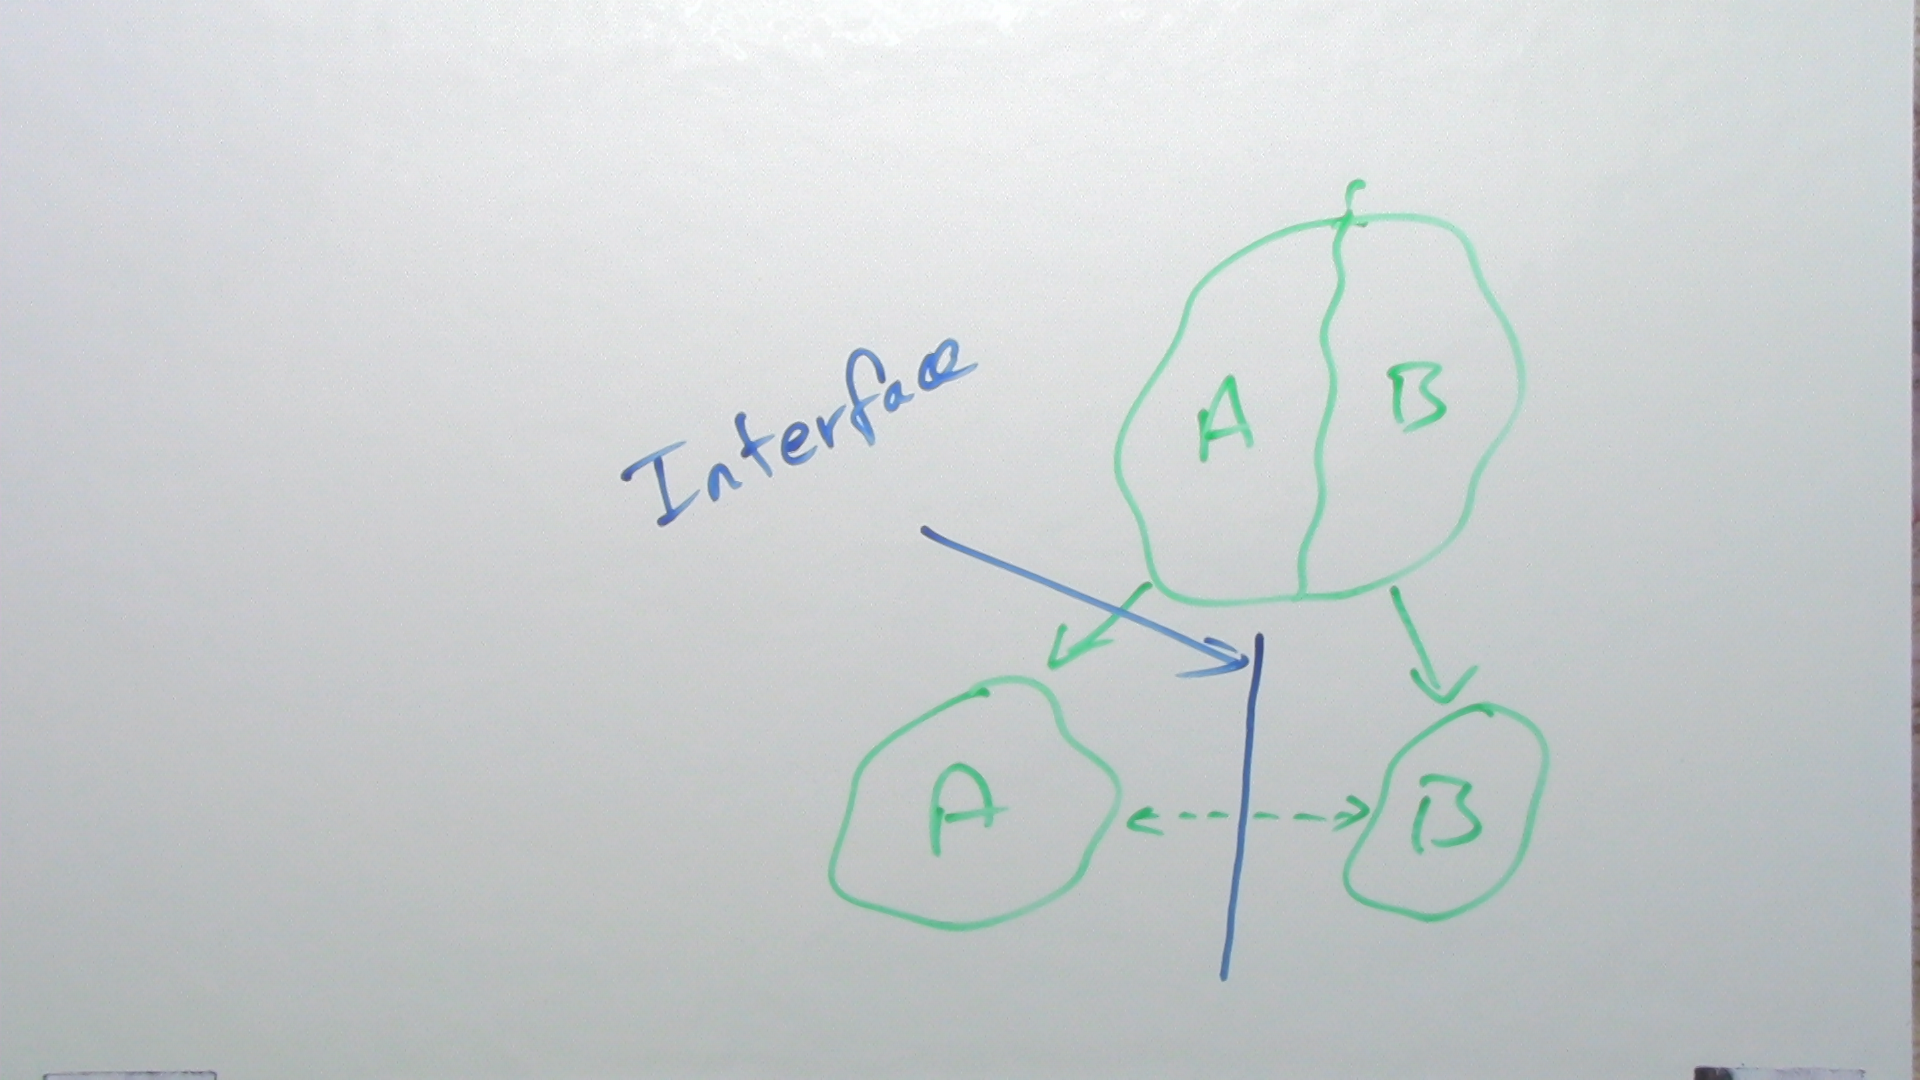 A B
Interface
A B